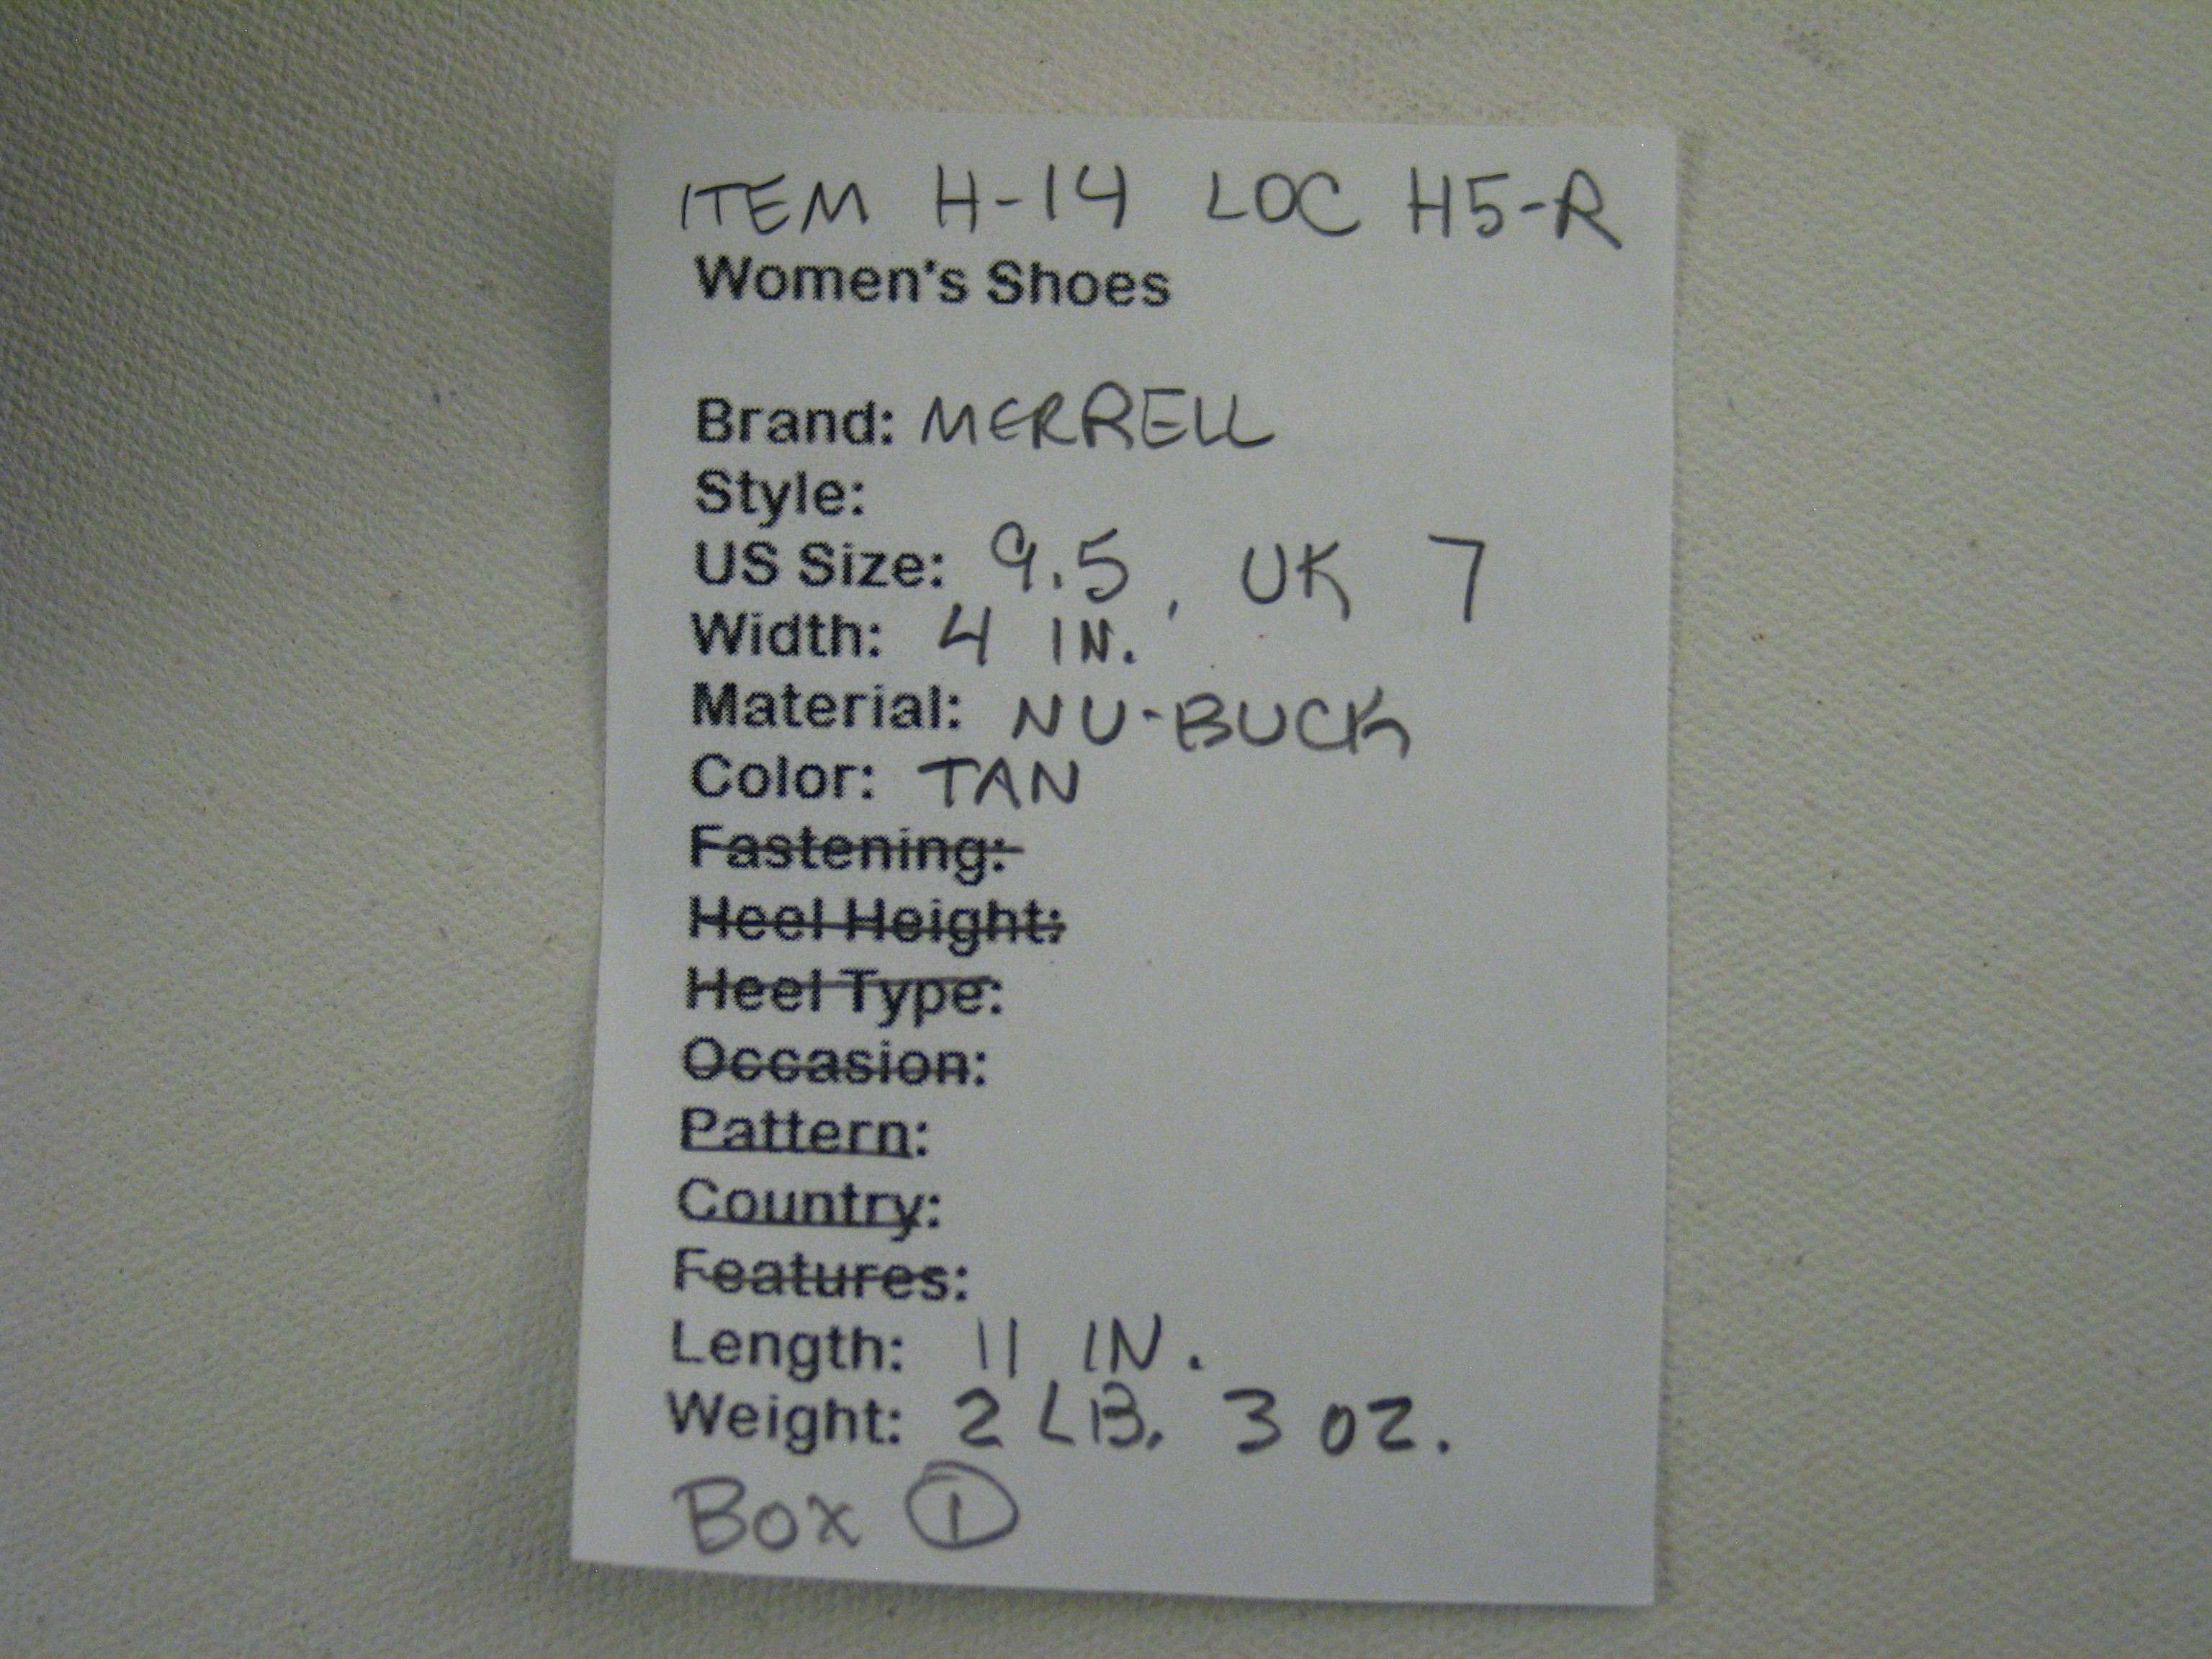 ITEM H-14 LOC H5-R
Women's Shoes
Brand: MERRELL
Style:
US Size: 9.5, UK 7
Width: 4 IN.
Material: NU-BUCK
Color: TAN
Fastening:
Heel Height:
Heel Type:
Occasion:
Pattern:
Country:
Features:
Length: 11 IN.
Weight: 2 LB. 3 OZ.
BOX 1